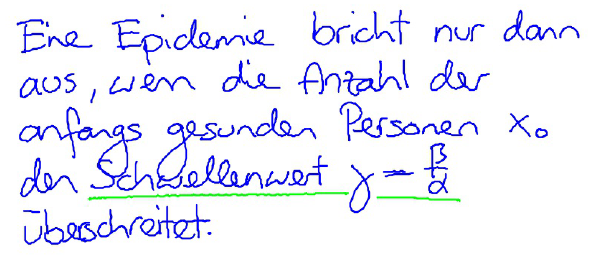 Eine Epidemie bricht nur dann
aus, wenn die Anzahl der
anfangs gesunden Personen x₀
den Schwellenwert γ = β/α
überschreitet.